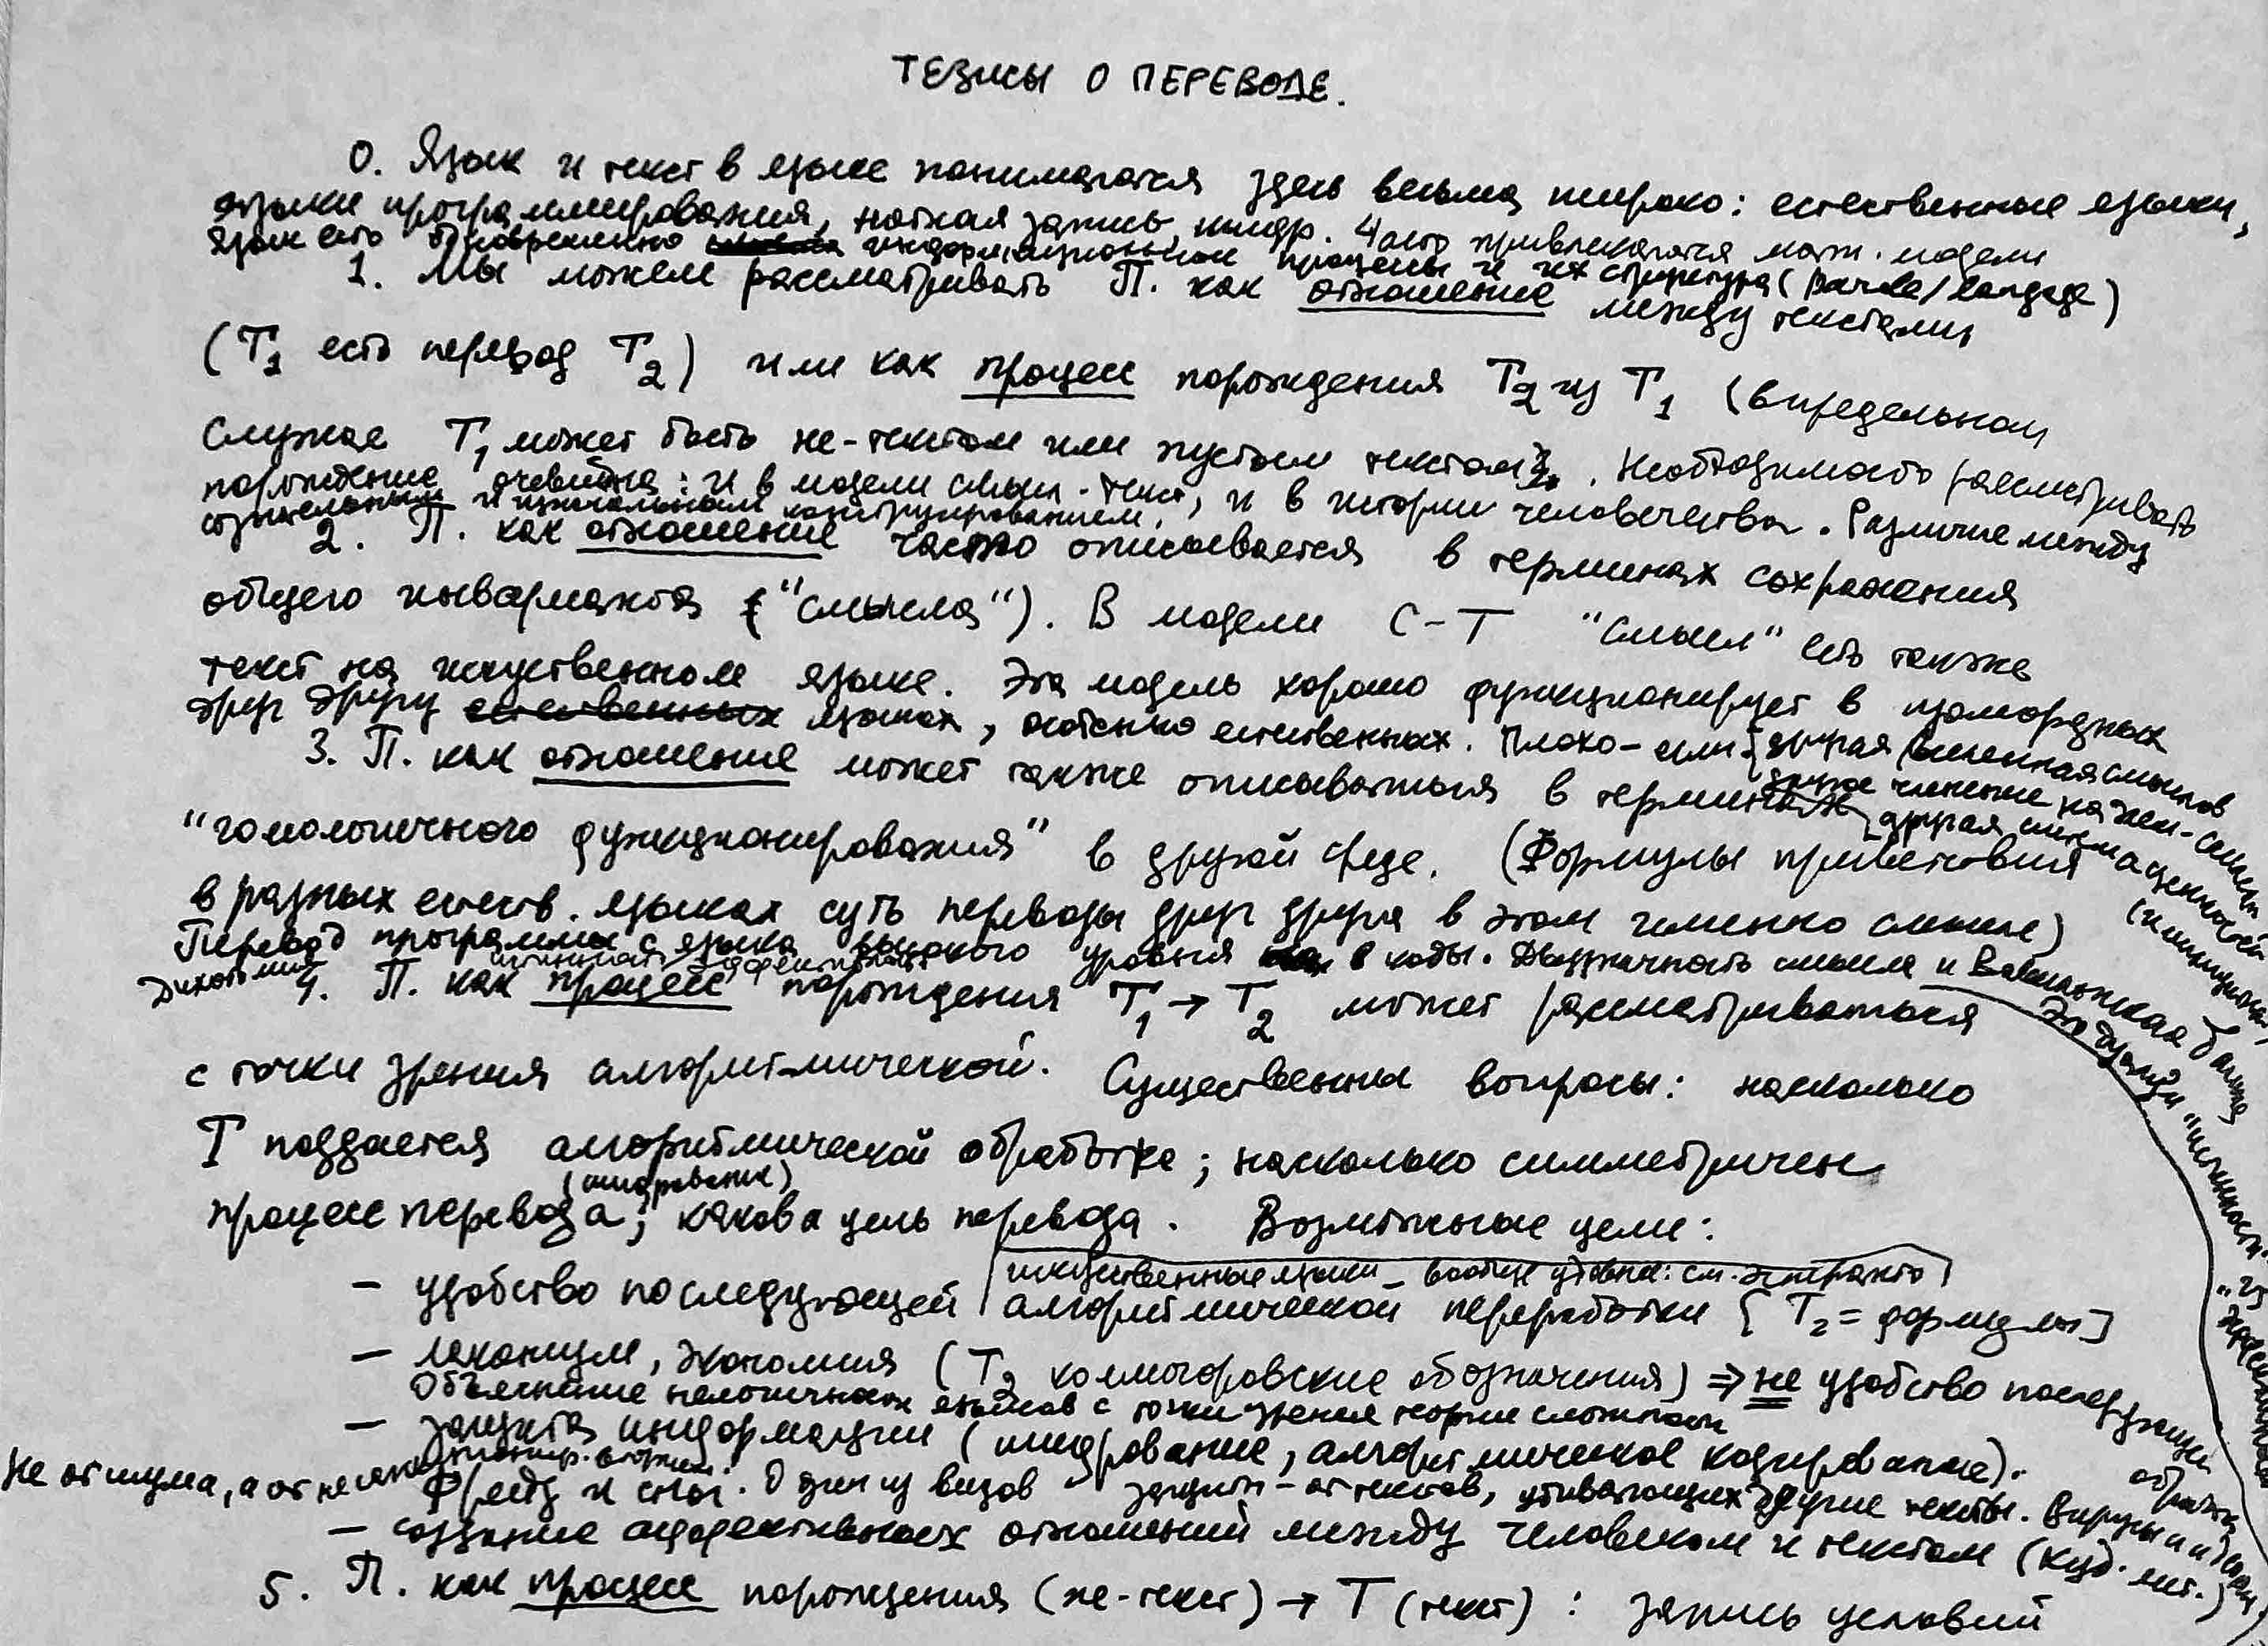 ТЕЗИСЫ О ПЕРЕВОДЕ.
0. Язык и текст в языке понимаются здесь весьма широко: естественные языки,
языки программирования, нотная запись, шифр. Часто привлекаются мат. модели
Язык есть одновременно информационные процессы и их структура (parole/langage)
1. Мы можем рассматривать П. как отношение между текстами
(Т1 есть перевод Т2) или как процесс порождения Т2 из Т1 (в предельном
случае Т1 может быть не-текстом или пустым текстом). Необходимость рассматривать
порождение очевидна: и в модели смысл-текст, и в истории человечества. Различие между
и изначальным конструированием.
2. П. как отношение часто описывается в терминах сохранения
общего инварианта ("смысла"). В модели С-Т "смысл" есть также
текст на искуственном языке. Эта модель хорошо функционирует в изоморфных
друг другу естественных языках, особенно естественных. Плохо - если другая вселенная смыслов
другое членение на жен-
другая система ценностей
3. П. как отношение может также описываться в терминах
"гомологичного функционирования" в другой среде. (Формулы приветствия
в разных естеств. языках суть переводы друг друга в этом именно смысле)
Перевод программы с языка высокого уровня в коды. Двузначность смысла и Вавилонская башня
Дихотомия
4. П. как процесс порождения Т1 → Т2 может рассматриваться
с точки зрения алгоритмической. Существенны вопросы: насколько
Т поддается алгоритмической обработке; насколько симметричен
(шифрование)
процесс перевода; какова цель перевода. Возможные цели:
искусственные языки - вообще удобнее: см. эсперанто
- удобство последующей алгоритмической переработки [Т2 = формулы]
- лаконизм, экономия (Т2 колмогоровские обозначения) ⇒ не удобство последующей обработки
Объяснение нелогичных языков с точки зрения теории сложности
- защита информации (шифрование, алгоритмическое кодирование).
Не от шума, а от
Фрейд и сны. Один из видов защиты - от текстов, убивающих другие тексты. Вирусы и
- создание аффективных отношений между человеком и текстом (худ. лит.)
5. П. как процесс порождения (не-текст) → Т (текст): запись условий